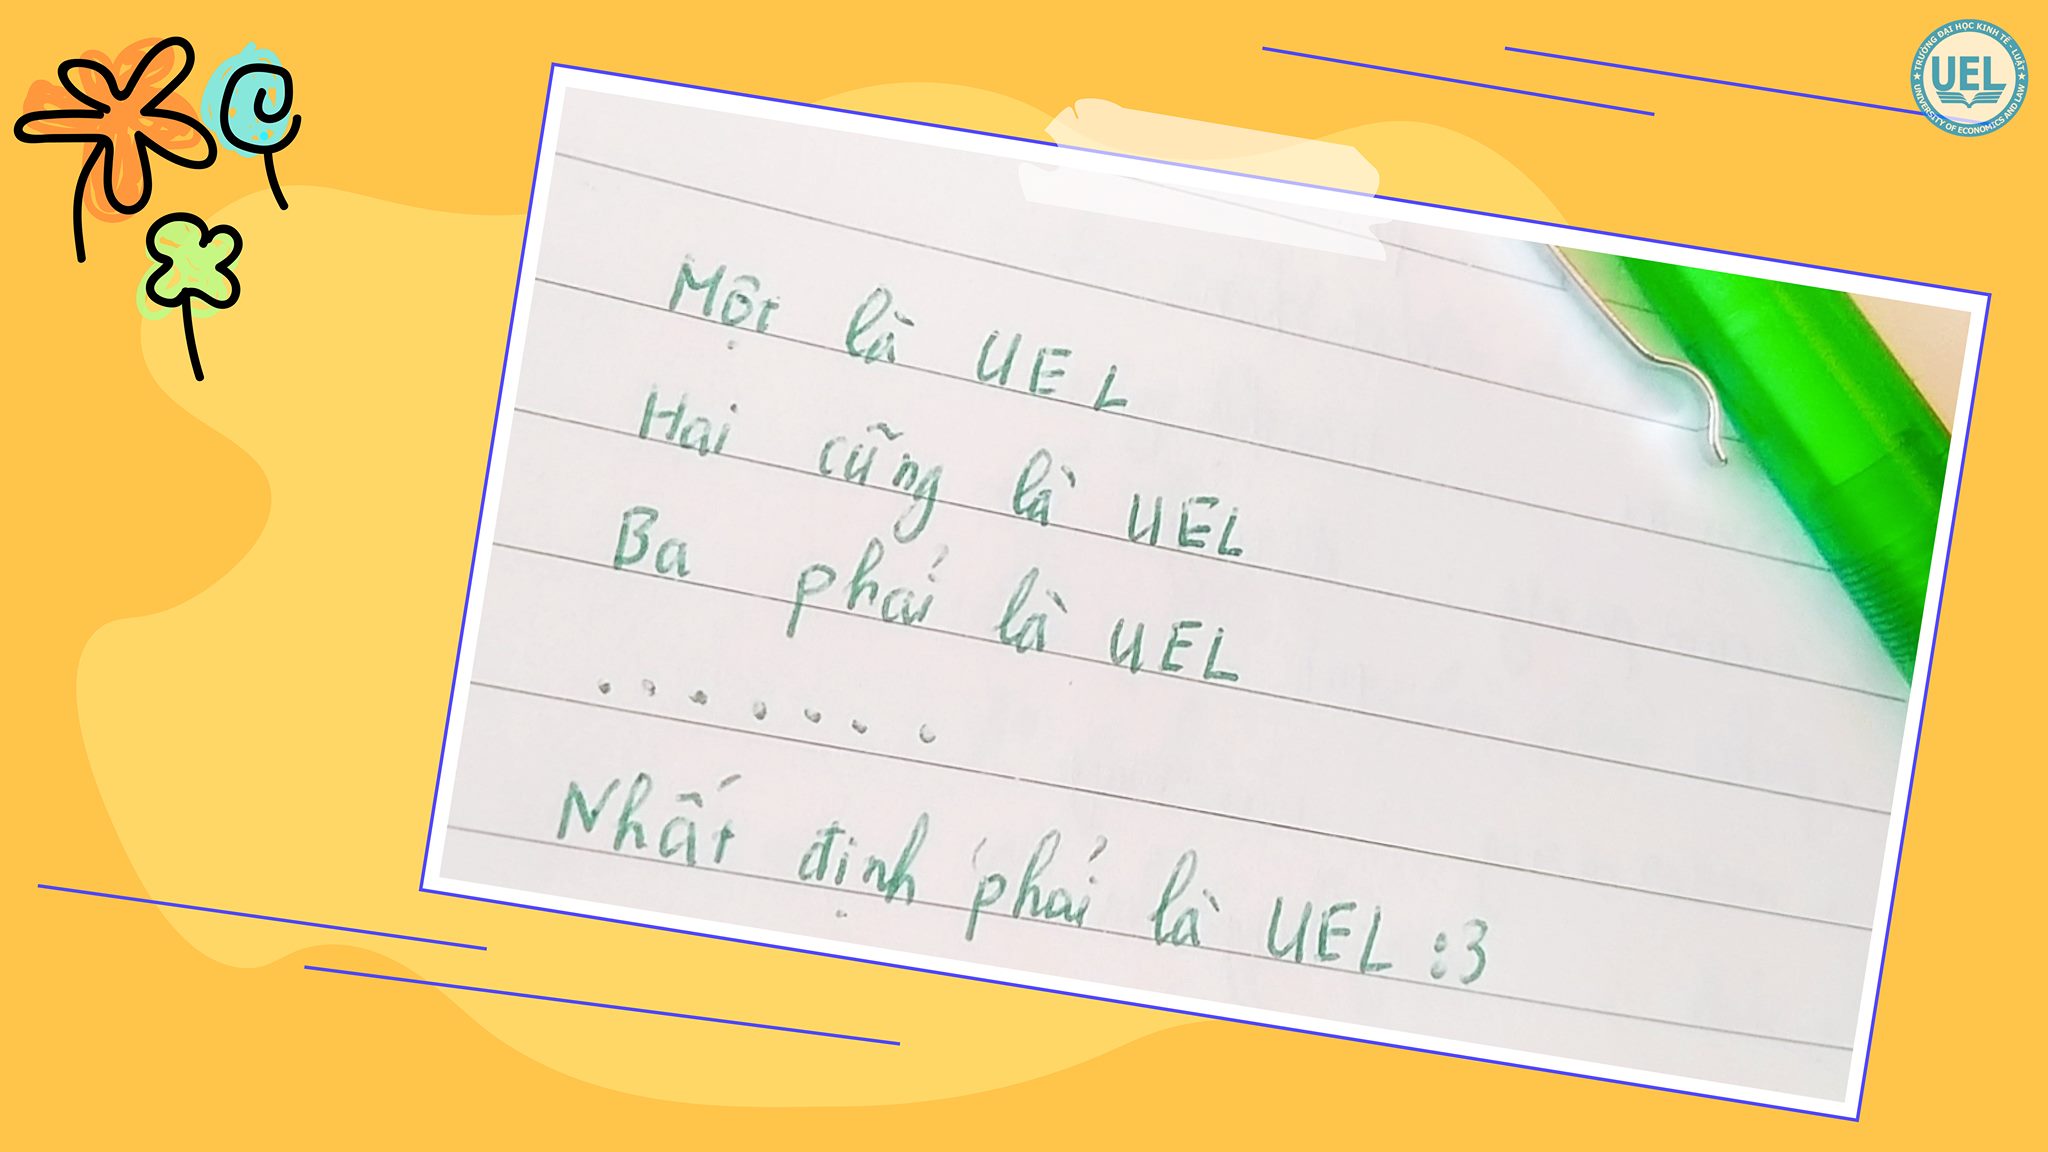 TRƯỜNG ĐẠI HỌC KINH TẾ - LUẬT
UEL
UNIVERSITY OF ECONOMICS AND LAW
Một là UEL
Hai cũng là UEL
Ba phải là UEL
.......
Nhất định phải là UEL :3